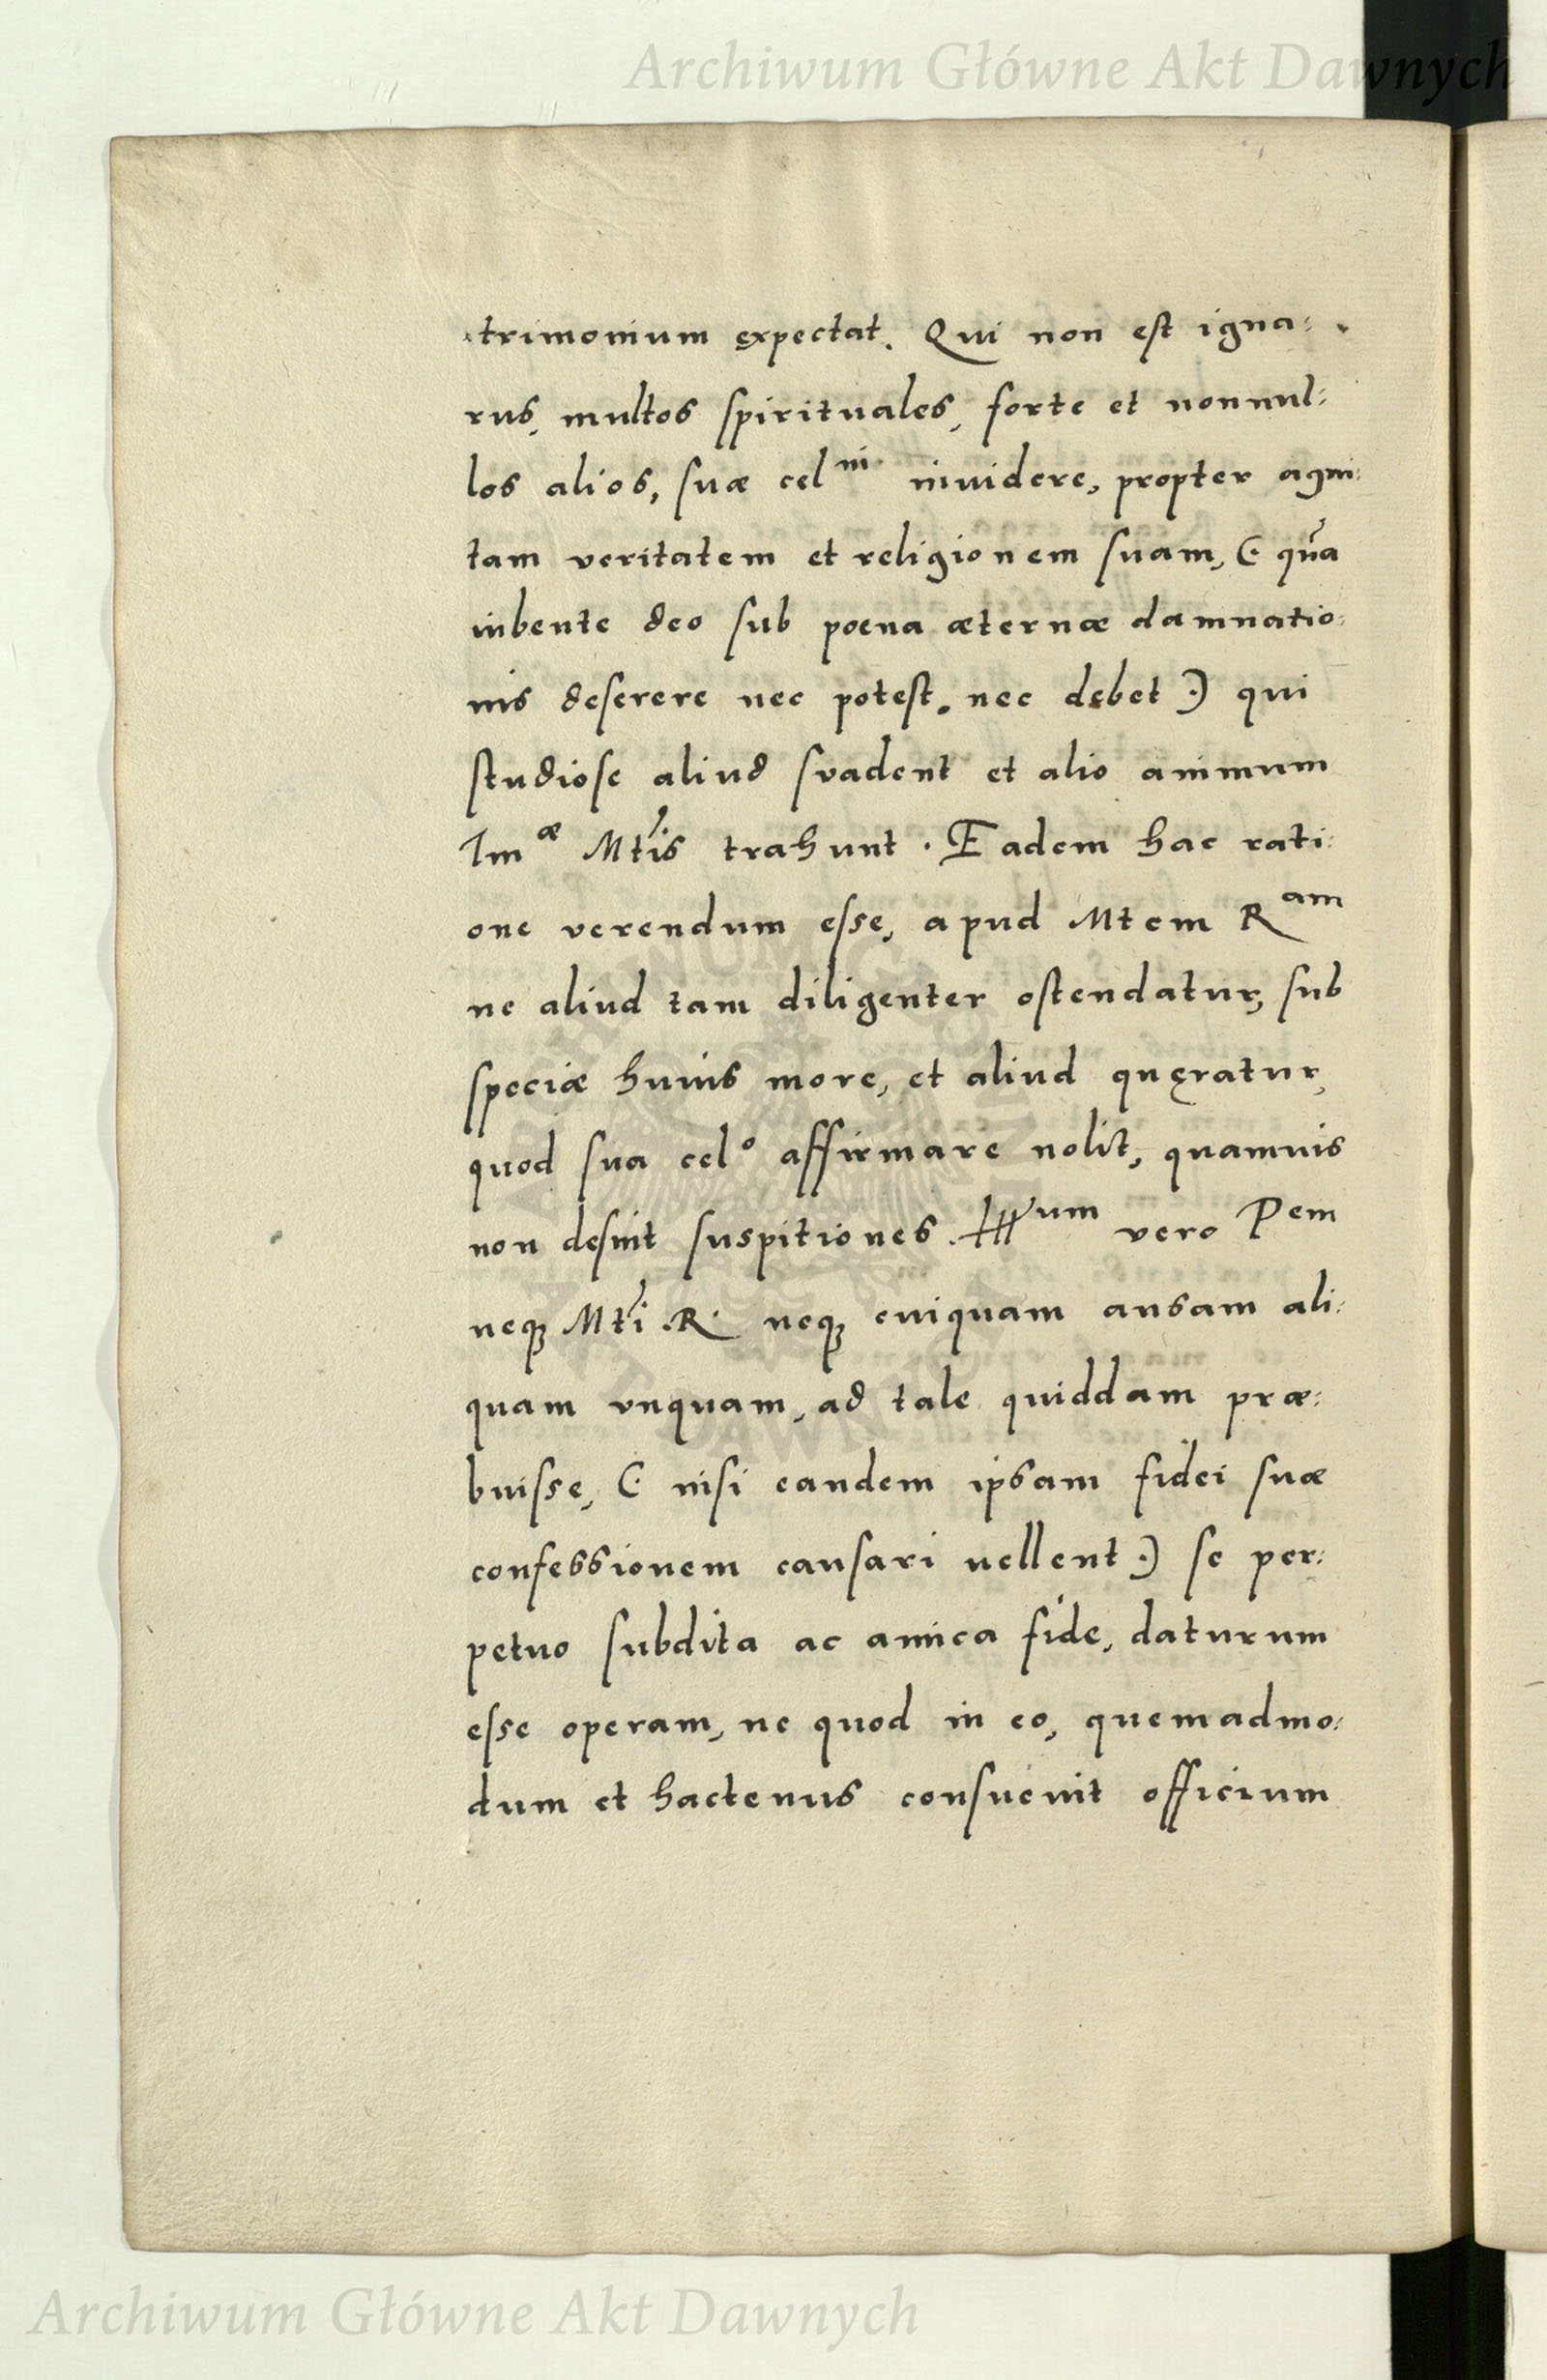 Archiwum Główne Akt Dawnych
trimonium expectat. Qui non est igna:
rus, multos spirituales, forte et nonnul:
los alios, suæ cel^ni inuidere, propter agni:
tam veritatem et religionem suam, (: qua
iubente deo sub poena æternæ damnatio:
nis deserere nec potest. nec debet :) qui
studiose aliud svadent et alio animum
Im^æ Mtis trahunt. Eadem hac rati:
one verendum esse, apud Mtem R^am
ne aliud tam diligenter ostendatur, sub
speciæ huius more, et aliud quęratur,
quod sua cel^o affirmare nolit, quamuis
non desint suspitiones. Ill^um vero P^em
neq; Mti .R. neq; cuiquam ansam ali:
quam vnquam, ad tale quiddam præ:
buisse, (: nisi eandem ipsam fidei suæ
confessionem causari uellent :) se per:
petuo subdita ac amica fide, daturum
esse operam, ne quod in eo, quemadmo:
dum et hactenus consueuit officium
Archiwum Główne Akt Dawnych